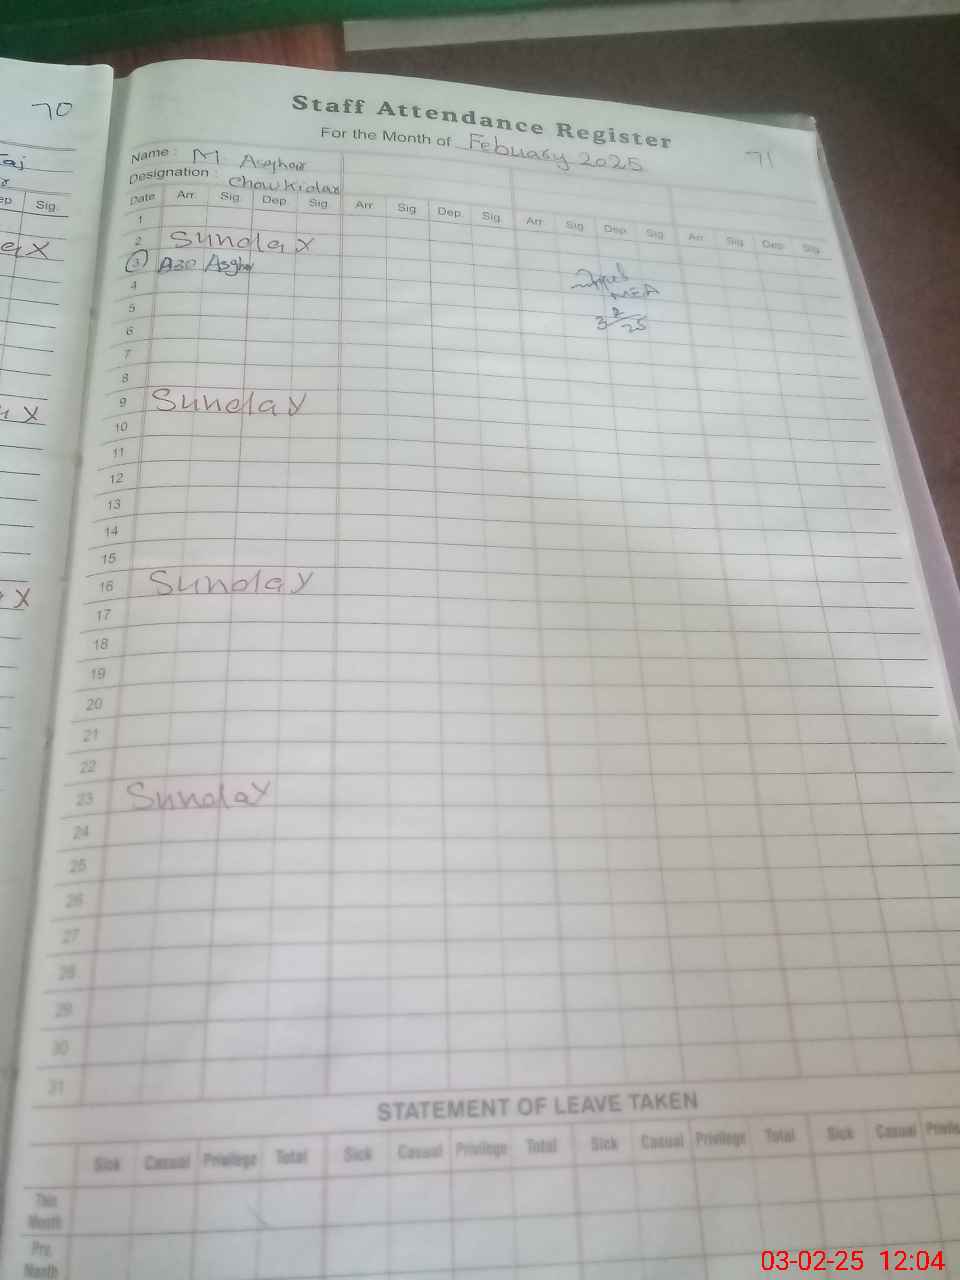 70
71
Staff Attendance Register
For the Month of Febuary 2025
Name : M. Asghar
Designation : Chowkidar
Date Arr. Sig. Dep. Sig. Arr. Sig. Dep. Sig. Arr. Sig. Dep. Sig. Arr. Sig. Dep. Sig.
Sig.
1
2 Sunday
3 A30 Asghar
4
MEA
5
3/2/25
6
7
8
9 Sunday
10
11
12
13
14
15
16 Sunday
17
18
19
20
21
22
23 Sunday
24
25
26
27
28
29
30
31
STATEMENT OF LEAVE TAKEN
Sick Casual Privilege Total Sick Casual Privilege Total Sick Casual Privilege Total Sick Casual
This Month
Pre. Month
03-02-25 12:04